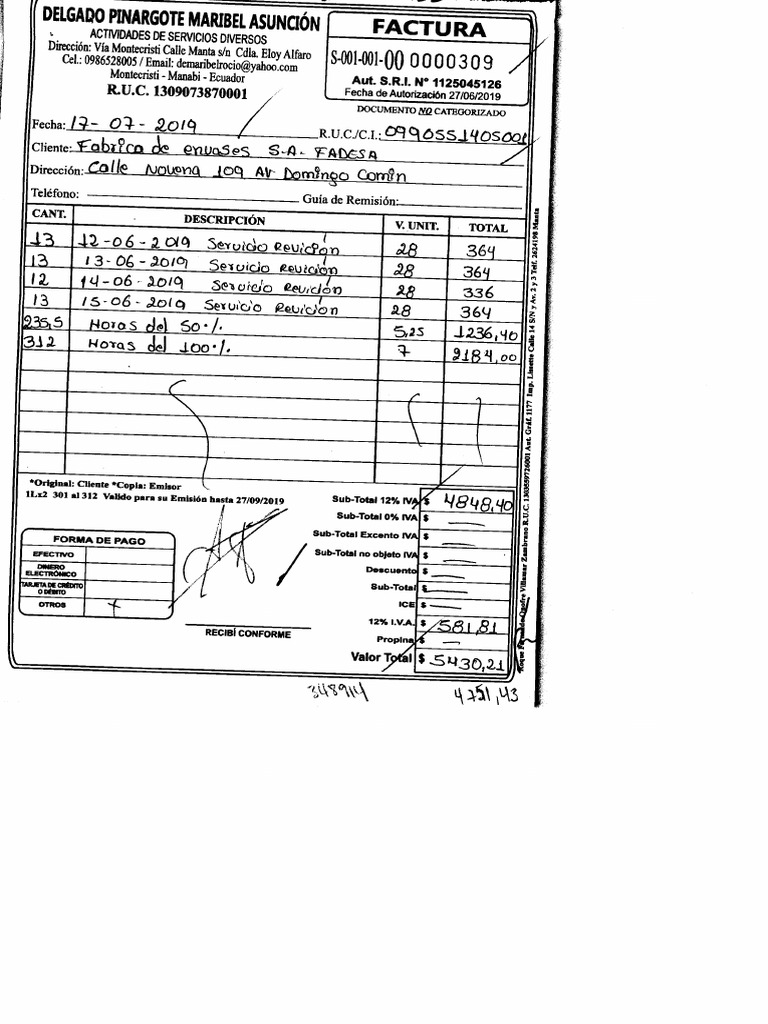 DELGADO PINARGOTE MARIBEL ASUNCIÓN
ACTIVIDADES DE SERVICIOS DIVERSOS
Dirección: Vía Montecristi Calle Manta s/n Cdla. Eloy Alfaro
Cel.: 0986528005 / Email: demaribelrocio@yahoo.com
Montecristi - Manabi - Ecuador
R.U.C. 1309073870001
FACTURA
S-001-001-00 0000309
Aut. S.R.I. N° 1125045126
Fecha de Autorización 27/06/2019
DOCUMENTO NO CATEGORIZADO
Fecha: 17-07-2019 R.U.C./C.I.: 0990551405001
Cliente: Fabrica de envases S-A- FADESA
Dirección: Calle Novena 109 Av Domingo Comin
Teléfono: Guía de Remisión:
CANT. DESCRIPCIÓN V. UNIT. TOTAL
13 12-06-2019 Servicio Revición 28 364
13 13-06-2019 Servicio Revición 28 364
12 14-06-2019 Servicio Revición 28 336
13 15-06-2019 Servicio Revición 28 364
235,5 Horas del 50% 5,25 1236,40
312 Horas del 100% 7 2184,00
*Original: Cliente *Copia: Emisor
1Lx2 301 al 312 Valido para su Emisión hasta 27/09/2019
FORMA DE PAGO
EFECTIVO
DINERO ELECTRÓNICO
TARJETA DE CRÉDITO O DÉBITO
OTROS x
RECIBÍ CONFORME
Sub-Total 12% IVA $ 4848,40
Sub-Total 0% IVA $ —
Sub-Total Excento IVA $ —
Sub-Total no objeto IVA $ —
Descuento $ —
Sub-Total $ —
ICE $ —
12% I.V.A. $ 581,81
Propina $ —
Valor Total $ 5430,21
348914 4751,43
Villamar Zambrano R.U.C. 1303559726001 Aut. Gráf. 1177 Imp. Lissette Calle 14 S/N y Av. 2 y 3 Telf. 2624198 Manta